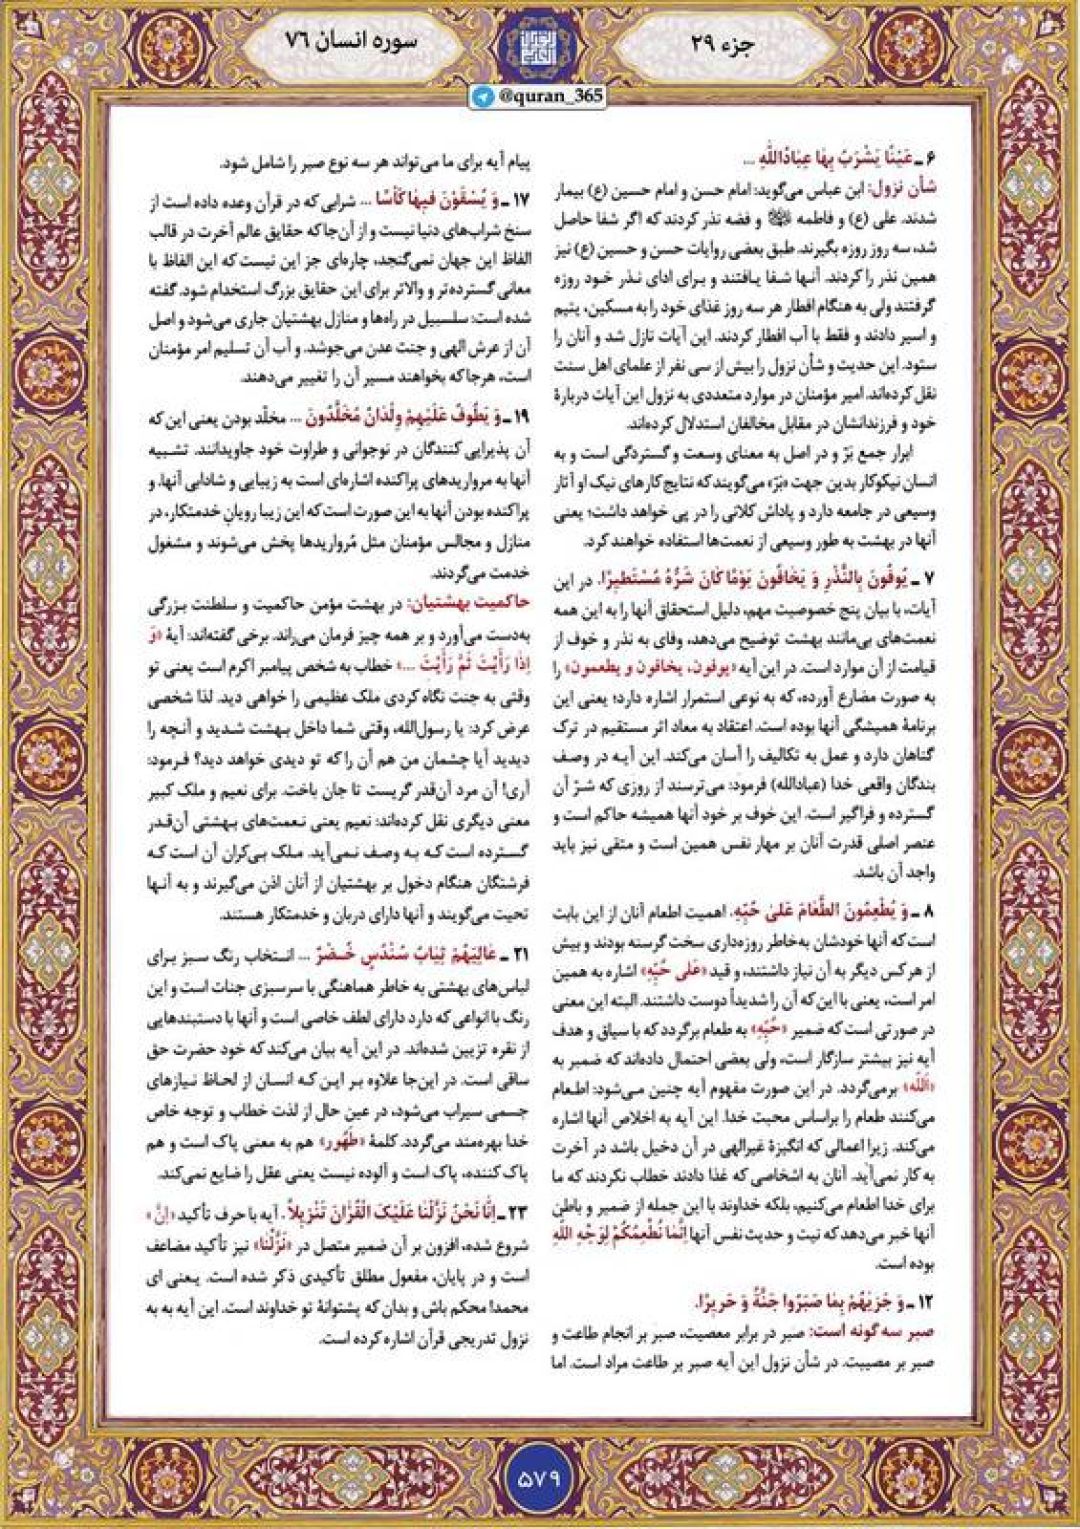 جزء ۲۹
سوره انسان ۷۶
@quran_365
۶ ـ عَیْنًا یَشْرَبُ بِهٰا عِبٰادُاللّٰهِ ...
شأن نزول: ابن عباس می‌گوید: امام حسن و امام حسین (ع) بیمار
شدند. علی (ع) و فاطمه ﷺ و فضه نذر کردند که اگر شفا حاصل
شد، سه روز روزه بگیرند. طبق بعضی روایات حسن و حسین (ع) نیز
همین نذر را کردند. آنها شفا یافتند و برای ادای نذر خود روزه
گرفتند ولی به هنگام افطار هر سه روز غذای خود را به مسکین، یتیم
و اسیر دادند و فقط با آب افطار کردند. این آیات نازل شد و آنان را
ستود. این حدیث و شأن نزول را بیش از سی نفر از علمای اهل سنت
نقل کرده‌اند. امیر مؤمنان در موارد متعددی به نزول این آیات دربارهٔ
خود و فرزندانشان در مقابل مخالفان استدلال کرده‌اند.
ابرار جمع بَرّ و در اصل به معنای وسعت و گستردگی است و به
انسان نیکوکار بدین جهت «بَرّ» می‌گویند که نتایج کارهای نیک او آثار
وسیعی در جامعه دارد و پاداش کلانی را در پی خواهد داشت؛ یعنی
آنها در بهشت به طور وسیعی از نعمت‌ها استفاده خواهند کرد.
۷ ـ یُوفُونَ بِالنَّذْرِ وَ یَخٰافُونَ یَوْمًا کٰانَ شَرُّهُ مُسْتَطیرًا. در این
آیات، با بیان پنج خصوصیت مهم، دلیل استحقاق آنها را به این همه
نعمت‌های بی‌مانند بهشت توضیح می‌دهد، وفای به نذر و خوف از
قیامت از آن موارد است. در این آیه «یوفون، یخافون و یطعمون» را
به صورت مضارع آورده، که به نوعی استمرار اشاره دارد؛ یعنی این
برنامهٔ همیشگی آنها بوده است. اعتقاد به معاد اثر مستقیم در ترک
گناهان دارد و عمل به تکالیف را آسان می‌کند. این آیه در وصف
بندگان واقعی خدا (عبادالله) فرمود: می‌ترسند از روزی که شرّ آن
گسترده و فراگیر است. این خوف بر خود آنها همیشه حاکم است و
عنصر اصلی قدرت آنان بر مهار نفس همین است و متقی نیز باید
واجد آن باشد.
۸ ـ وَ یُطْعِمُونَ الطَّعٰامَ عَلیٰ حُبِّهِ. اهمیت اطعام آنان از این بابت
است که آنها خودشان به‌خاطر روزه‌داری سخت گرسنه بودند و بیش
از هر کس دیگر به آن نیاز داشتند، و قید «عَلی حُبِّهِ» اشاره به همین
امر است، یعنی با این که آن را شدیداً دوست داشتند. البته این معنی
در صورتی است که ضمیر «حُبِّهِ» به طعام برگردد که با سیاق و هدف
آیه نیز بیشتر سازگار است، ولی بعضی احتمال داده‌اند که ضمیر به
«اَللّٰه» برمی‌گردد. در این صورت مفهوم آیه چنین می‌شود: اطعام
می‌کنند طعام را براساس محبت خدا. این آیه به اخلاص آنها اشاره
می‌کند. زیرا اعمالی که انگیزهٔ غیرالهی در آن دخیل باشد در آخرت
به کار نمی‌آید. آنان به اشخاصی که غذا دادند خطاب نکردند که ما
برای خدا اطعام می‌کنیم، بلکه خداوند با این جمله از ضمیر و باطن
آنها خبر می‌دهد که نیت و حدیث نفس آنها اِنَّمٰا نُطْعِمُکُمْ لِوَجْهِ اللّٰهِ
بوده است.
۱۲ ـ وَ جَزٰیهُمْ بِمٰا صَبَرُوا جَنَّةً وَ حَریرًا.
صبر سه گونه است: صبر در برابر معصیت، صبر بر انجام طاعت و
صبر بر مصیبت. در شأن نزول این آیه صبر بر طاعت مراد است. اما
پیام آیه برای ما می‌تواند هر سه نوع صبر را شامل شود.
۱۷ ـ وَ یُسْقَوْنَ فیهٰا کَأْسًا ... شرابی که در قرآن وعده داده است از
سنخ شراب‌های دنیا نیست و از آن‌جا که حقایق عالم آخرت در قالب
الفاظ این جهان نمی‌گنجد، چاره‌ای جز این نیست که این الفاظ با
معانی گسترده‌تر و والاتر برای این حقایق بزرگ استخدام شود. گفته
شده است: سلسبیل در راه‌ها و منازل بهشتیان جاری می‌شود و اصل
آن از عرش الهی و جنت عدن می‌جوشد. و آب آن تسلیم امر مؤمنان
است، هرجا که بخواهند مسیر آن را تغییر می‌دهند.
۱۹ ـ وَ یَطُوفُ عَلَیْهِمْ وِلْدٰانٌ مُخَلَّدُونَ ... مخلّد بودن یعنی این که
آن پذیرایی کنندگان در نوجوانی و طراوت خود جاویدانند. تشبیه
آنها به مرواریدهای پراکنده اشاره‌ای است به زیبایی و شادابی آنها. و
پراکنده بودن آنها به این صورت است که این زیبا رویانِ خدمتکار، در
منازل و مجالس مؤمنان مثل مُرواریدها پخش می‌شوند و مشغول
خدمت می‌گردند.
حاکمیت بهشتیان: در بهشت مؤمن حاکمیت و سلطنت بزرگی
به‌دست می‌آورد و بر همه چیز فرمان می‌راند. برخی گفته‌اند: آیهٔ «وَ
اِذٰا رَأَیْتَ ثَمَّ رَأَیْتَ ...» خطاب به شخص پیامبر اکرم است یعنی تو
وقتی به جنت نگاه کردی ملک عظیمی را خواهی دید. لذا شخصی
عرض کرد: یا رسول‌الله، وقتی شما داخل بهشت شدید و آنچه را
دیدید آیا چشمان من هم آن را که تو دیدی خواهد دید؟ فرمود:
آری! آن مرد آن‌قدر گریست تا جان باخت. برای نعیم و ملک کبیر
معنی دیگری نقل کرده‌اند: نعیم یعنی نعمت‌های بهشتی آن‌قدر
گسترده است که به وصف نمی‌آید. ملک بی‌کران آن است که
فرشتگان هنگام دخول بر بهشتیان از آنان اذن می‌گیرند و به آنها
تحیت می‌گویند و آنها دارای دربان و خدمتکار هستند.
۲۱ ـ عٰالِیَهُمْ ثِیٰابُ سُنْدُسٍ خُضْرٌ ... انتخاب رنگ سبز برای
لباس‌های بهشتی به خاطر هماهنگی با سرسبزی جنات است و این
رنگ با انواعی که دارد دارای لطف خاصی است و آنها با دستبندهایی
از نقره تزیین شده‌اند. در این آیه بیان می‌کند که خود حضرت حق
ساقی است. در این‌جا علاوه بر این که انسان از لحاظ نیازهای
جسمی سیراب می‌شود، در عین حال از لذت خطاب و توجه خاص
خدا بهره‌مند می‌گردد. کلمهٔ «طَهُور» هم به معنی پاک است و هم
پاک کننده، پاک است و آلوده نیست یعنی عقل را ضایع نمی‌کند.
۲۳ ـ اِنّٰا نَحْنُ نَزَّلْنٰا عَلَیْکَ الْقُرْاٰنَ تَنْزیلاً. آیه با حرف تأکید «اِنَّ»
شروع شده، افزون بر آن ضمیر متصل در «نَزَّلْنٰا» نیز تأکید مضاعف
است و در پایان، مفعول مطلق تأکیدی ذکر شده است. یعنی ای
محمد! محکم باش و بدان که پشتوانهٔ تو خداوند است. این آیه به به
نزول تدریجی قرآن اشاره کرده است.
۵۷۹